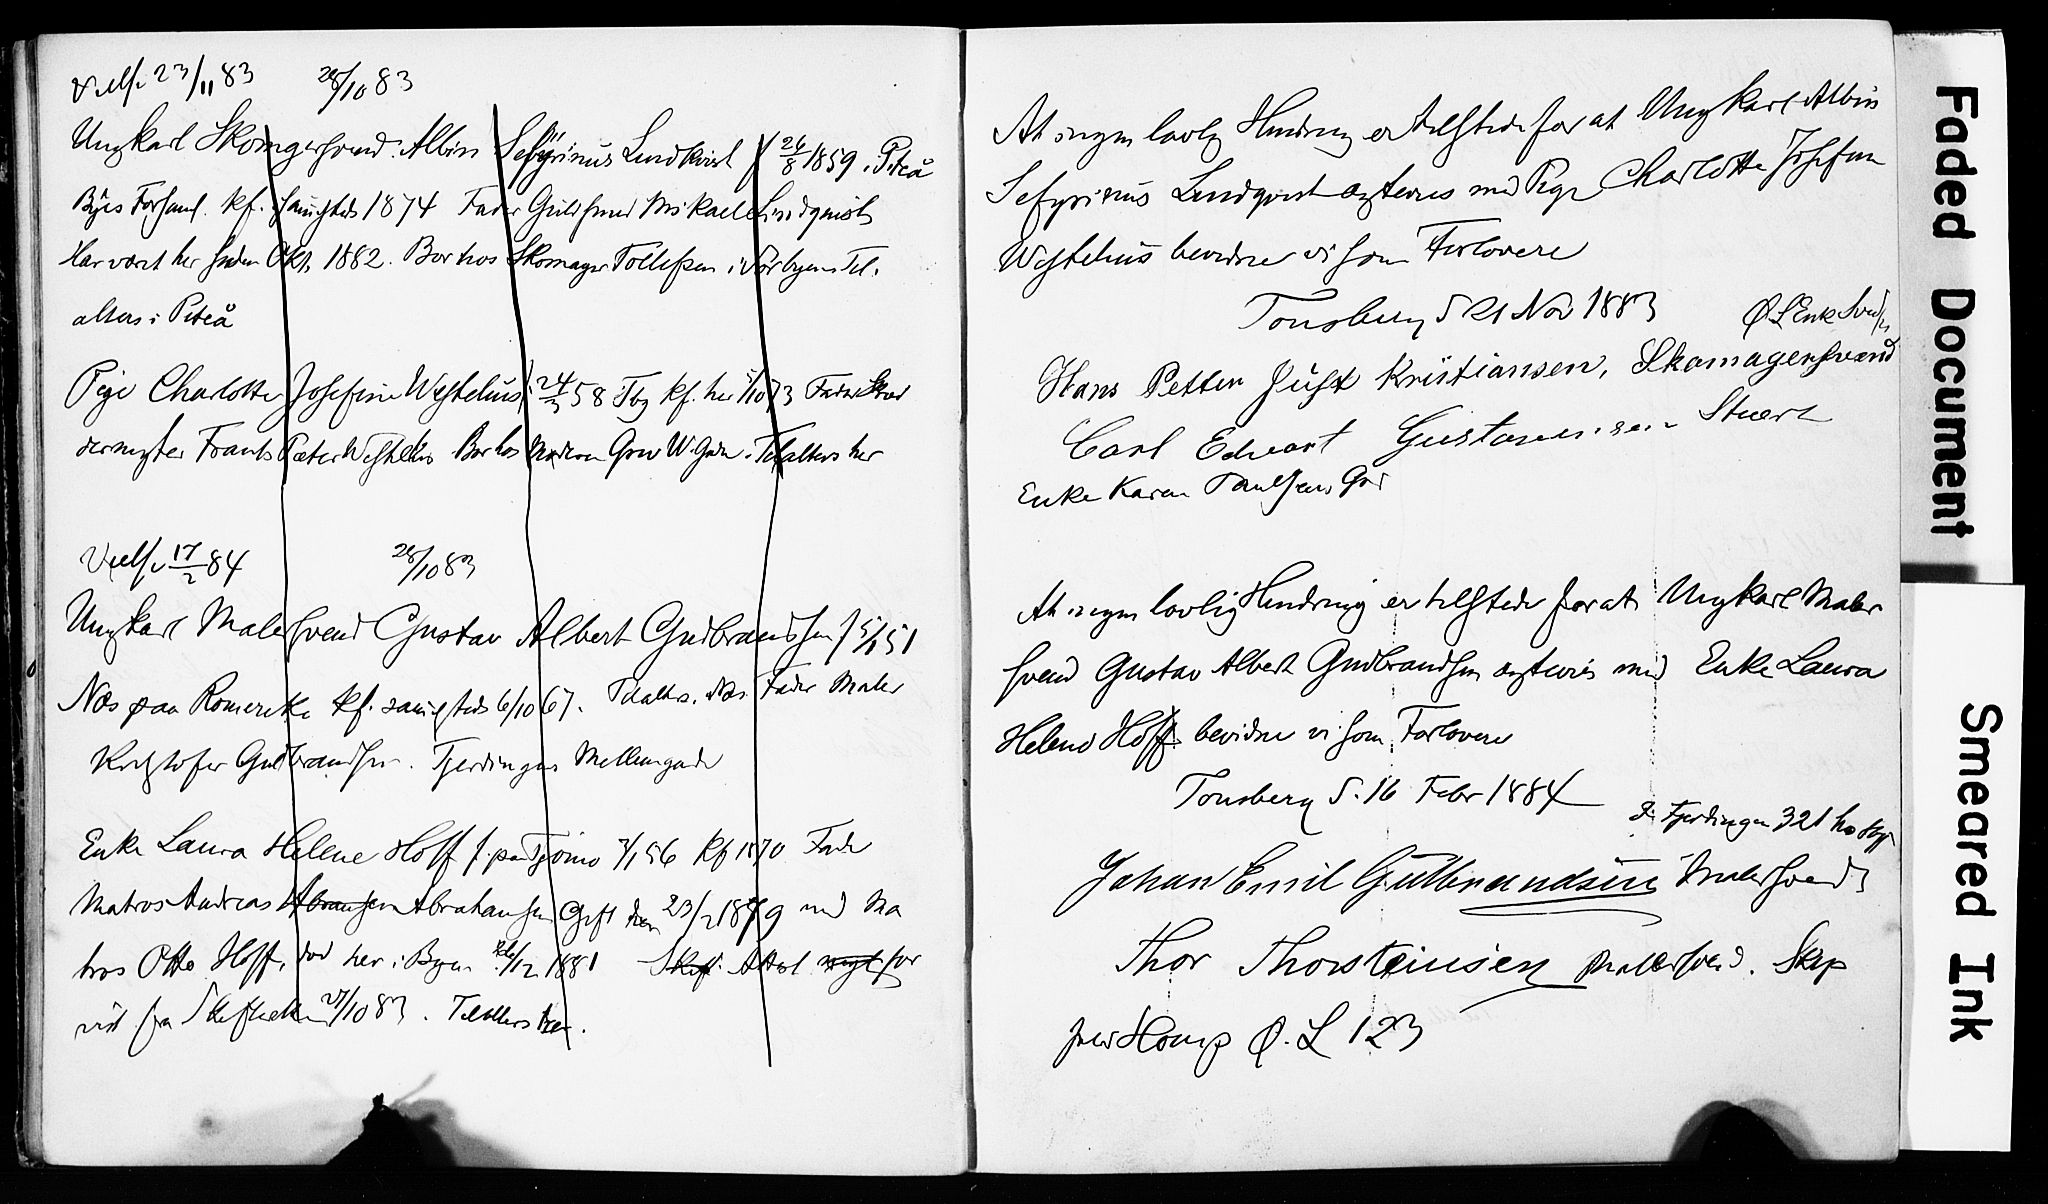 Viels. 23/11 83 28/10 83
Ungkarl Skomagersvend Albin Sefyrinus Lindkvist f 26/8 1859 i Piteå
Byes Forsaml. kf. samsteds 1874 Fader Guldsmed Mikael Lindquist
Har været her siden Okt. 1882. Bor hos Skomager Tollefsen i Nørbyen Til.
alters i Piteå
Pige Charlotte Josefine Westelius f. 24/3 58 Tbg kf. her /10 73 Fader Skræd
dermester Frants Peter Westelius Bor hos Moderen Grev W. Gade. Tilalters her
Viels. 17/2 84 28/10 83
Ungkarl Malersvend Gustav Albert Gudbrandsen f 5/1 51
Næs paa Romerike kf. samesteds 6/10 67. Tilalters. Næs Fader Maler
Kristofer Gudbrandsen. Fjerdingen Mellemgade
Enke Laura Helene Hoff f. paa Tjømø 7/1 56 kf 1870 Fader
Matros Andreas Abransen Abrahamsen Gift den 23/2 1879 med Ma
tros Otto Hoff, død her i Byen 26/12 1881 Skift. Attest for
vist fra Skifteretten 27/10 83. Tilalters her.
At ingen lovlig Hindring er tilstede for at Ungkarl Albin
Sefyrinus Lindqvist ægtevies med Pige Charlotte Josefine
Westelius bevidne vi som Forlovere
Tonsberg d 21 Nov 1883 Ø L Enke
Hans Petter Just Kristiansen, Skomagersvend
Carl Edvart Gustavensen Stuert
Enke Karen Paulsens Går
At ingen lovlig Hindring er tilstede for at Ungkarl Maler
svend Gustav Albert Gudbrandsen ægtevies med Enke Laura
Helene Hoff bevidne vi som Forlovere
Tonsberg d. 16 Febr 1884
Fjerdingen 321 hos
Johan Emil Gulbrandsen Malersvend
Thor Thorsteinsen Malersvend. Skip
Ø. L 123
Faded Document
Smeared Ink